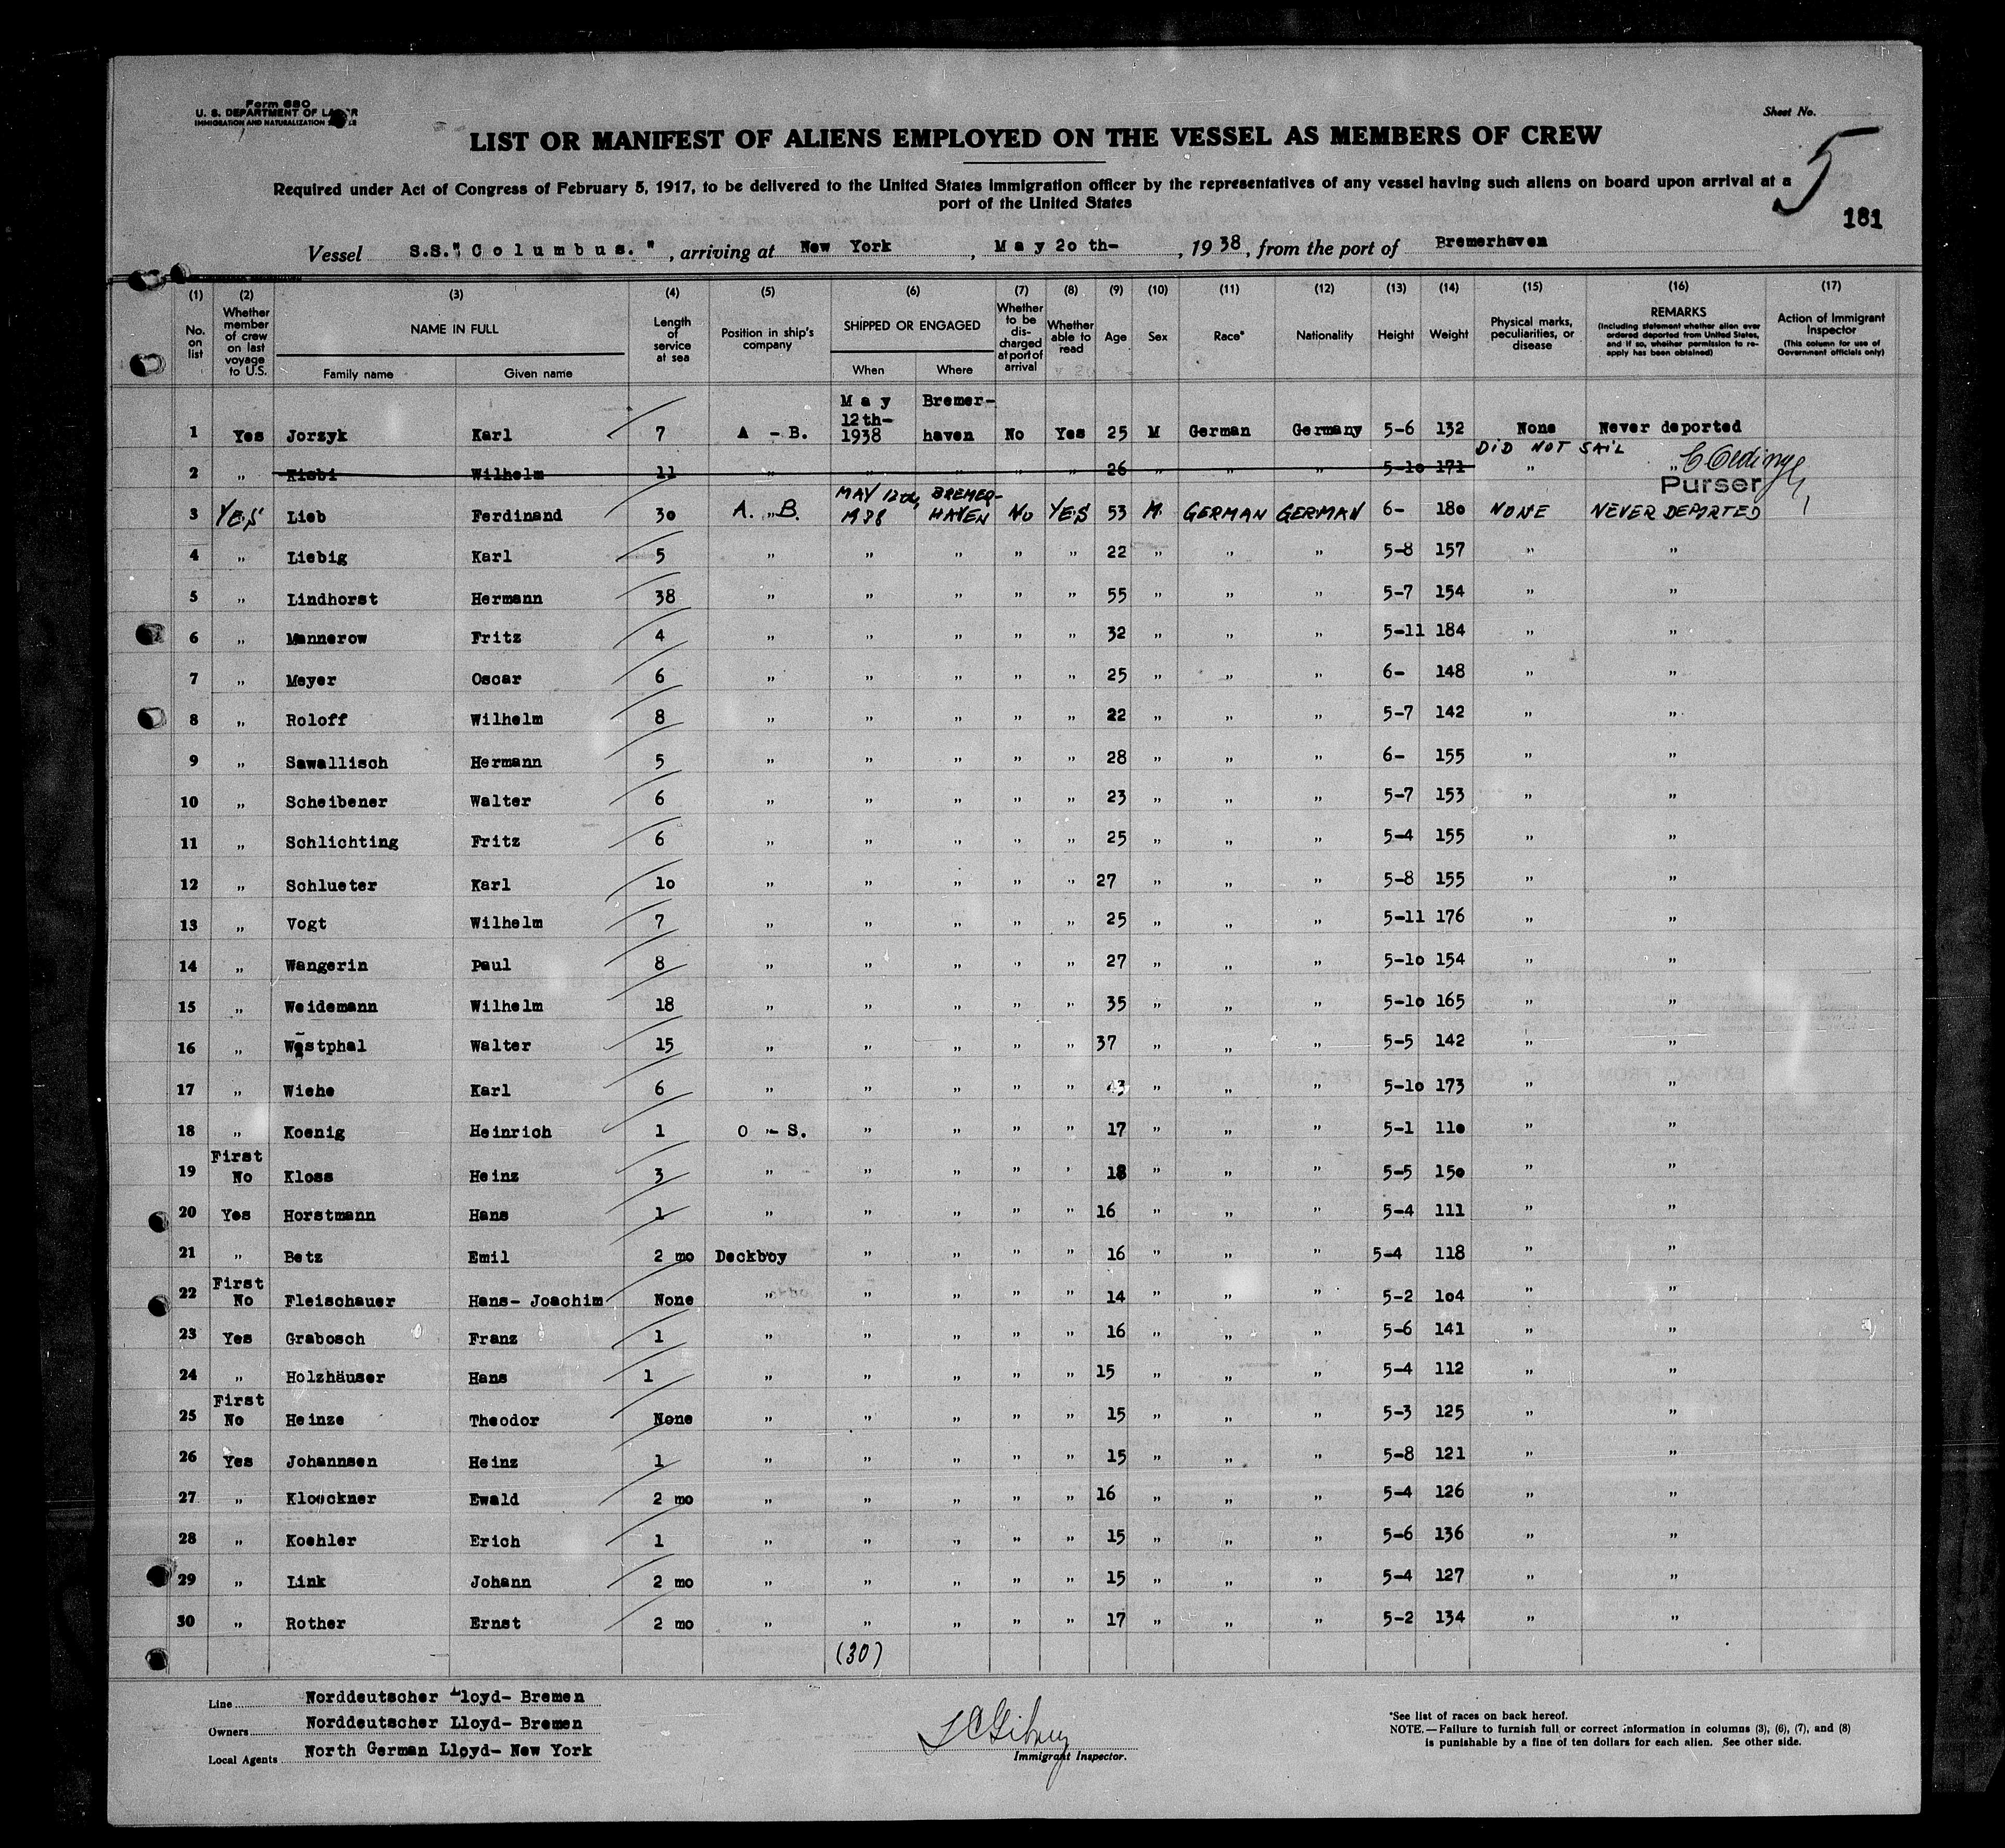 Form 680
U. S. DEPARTMENT OF LABOR
IMMIGRATION AND NATURALIZATION
Sheet No.
5
LIST OR MANIFEST OF ALIENS EMPLOYED ON THE VESSEL AS MEMBERS OF CREW
Required under Act of Congress of February 5, 1917, to be delivered to the United States immigration officer by the representatives of any vessel having such aliens on board upon arrival at a
port of the United States
181
Vessel S.S. "Columbus." , arriving at New York , May 20 th- , 1938, from the port of Bremerhaven
(1) (2) (3) (4) (5) (6) (7) (8) (9) (10) (11) (12) (13) (14) (15) (16) (17)
No. on list
Whether member of crew on last voyage to U.S.
NAME IN FULL
Family name Given name
Length of service at sea
Position in ship's company
SHIPPED OR ENGAGED
When Where
Whether to be discharged at port of arrival
Whether able to read
Age Sex Race* Nationality Height Weight
Physical marks, peculiarities, or disease
REMARKS
(Including statement whether alien ever ordered deported from United States, and if so, whether permission to reapply has been obtained)
Action of Immigrant Inspector
(This column for use of Government officials only)
1 Yes Jorzyk Karl 7 A - B. May 12th- 1938 Bremer- haven No Yes 25 M German Germany 5-6 132 None Never deported
DID NOT SAIL
2 " Kisbi Wilhelm 11 " " " " " 26 " " " 5-10 171 " "
Purser
3 YES Lieb Ferdinand 30 A. " B. MAY 12th, 1938 BREMER- HAVEN NO YES 53 M. GERMAN GERMAN 6- 180 NONE NEVER DEPORTED
4 " Liebig Karl 5 " " " " " 22 " " " 5-8 157 " "
5 " Lindhorst Hermann 38 " " " " " 55 " " " 5-7 154 " "
6 " Mannerow Fritz 4 " " " " " 32 " " " 5-11 184 " "
7 " Meyer Oscar 6 " " " " " 25 " " " 6- 148 " "
8 " Roloff Wilhelm 8 " " " " " 22 " " " 5-7 142 " "
9 " Sawallisch Hermann 5 " " " " " 28 " " " 6- 155 " "
10 " Scheibener Walter 6 " " " " " 23 " " " 5-7 153 " "
11 " Schlichting Fritz 6 " " " " " 25 " " " 5-4 155 " "
12 " Schlueter Karl 10 " " " " " 27 " " " 5-8 155 " "
13 " Vogt Wilhelm 7 " " " " " 25 " " " 5-11 176 " "
14 " Wangerin Paul 8 " " " " " 27 " " " 5-10 154 " "
15 " Weidemann Wilhelm 18 " " " " " 35 " " " 5-10 165 " "
16 " Westphal Walter 15 " " " " " 37 " " " 5-5 142 " "
17 " Wiehe Karl 6 " " " " " 43 " " " 5-10 173 " "
18 " Koenig Heinrich 1 O - S. " " " " 17 " " " 5-1 110 " "
19 First No Kloss Heinz 3 " " " " " 18 " " " 5-5 150 " "
20 Yes Horstmann Hans 1 " " " " " 16 " " " 5-4 111 " "
21 " Betz Emil 2 mo Deckboy " " " " 16 " " " 5-4 118 " "
22 First No Fleischauer Hans- Joachim None " " " " " 14 " " " 5-2 104 " "
23 Yes Grabosch Franz 1 " " " " " 16 " " " 5-6 141 " "
24 " Holzhäuser Hans 1 " " " " " 15 " " " 5-4 112 " "
25 First No Heinze Theodor None " " " " " 15 " " " 5-3 125 " "
26 Yes Johannsen Heinz 1 " " " " " 15 " " " 5-8 121 " "
27 " Kloeckner Ewald 2 mo " " " " " 16 " " " 5-4 126 " "
28 " Koehler Erich 1 " " " " " 15 " " " 5-6 136 " "
29 " Link Johann 2 mo " " " " " 15 " " " 5-4 127 " "
30 " Rother Ernst 2 mo " " " " " 17 " " " 5-2 134 " "
(30)
Line Norddeutscher Lloyd- Bremen
Owners Norddeutscher Lloyd- Bremen
Local Agents North German Lloyd- New York
Immigrant Inspector.
*See list of races on back hereof.
NOTE.—Failure to furnish full or correct information in columns (3), (6), (7), and (8)
is punishable by a fine of ten dollars for each alien. See other side.